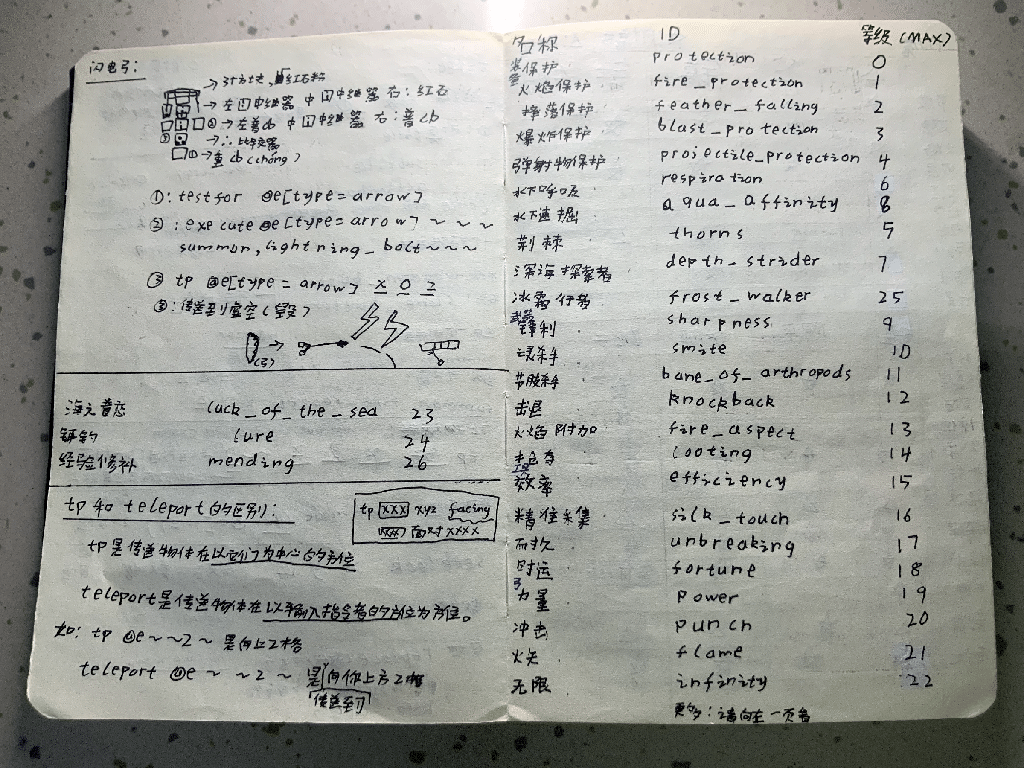 闪电弓:
→3个方块,红石粉
→左:中继器 中:中继器 右:红石
②→左:普cb 中:中继器 右:普cb
③→∴比较器
①→重cb(chóng)
①: testfor @e[type=arrow]
②: execute @e[type=arrow] ~ ~ ~
summon,lightning_bolt~~~
③ tp @e[type=arrow] x 0 z
③:传送到虚空(毁)
(弓)
海之眷恋 luck_of_the_sea 23
饵钓 lure 24
经验修补 mending 26
tp 和 teleport的区别:
tp [xxx] xyz facing
[xxx] 面对xxxx
tp是传送物体在以它们为中心的方位
teleport是传送物体在以输入指令者的方位为方位。
如: tp @e~~2~ 是向上2格
teleport @e ~ ~2 ~ 是向你上方2格
传送到
名称 ID 等级(MAX)
装备
保护 protection 0
火焰保护 fire_protection 1
摔落保护 feather_falling 2
爆炸保护 blast_protection 3
弹射物保护 projectile_protection 4
水下呼吸 respiration 6
水下速掘 aqua_affinity 8
荆棘 thorns 5
深海探索者 depth_strider 7
冰霜行者 frost_walker 25
武器
锋利 sharpness 9
亡灵杀手 smite 10
节肢杀手 bane_of_arthropods 11
击退 knockback 12
火焰附加 fire_aspect 13
抢夺 looting 14
工具
效率 efficiency 15
精准采集 silk_touch 16
耐久 unbreaking 17
时运 fortune 18
弓
力量 power 19
冲击 punch 20
火矢 flame 21
无限 infinity 22
更多:请向左一页看